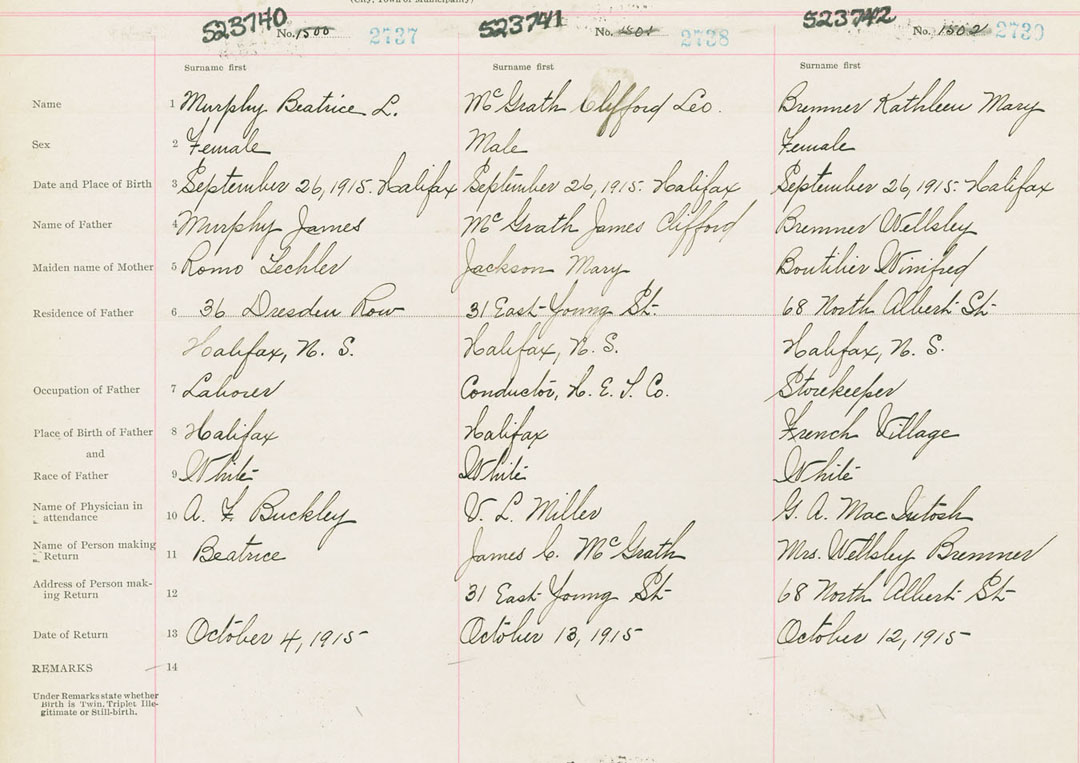 (City, Town or Municipality)
523740 523741 523742
No. 1500 2737 No. 1501 2738 No. 1502 2739
Surname first Surname first Surname first
Name 1 Murphy Beatrice L. McGrath Clifford Leo. Bremner Kathleen Mary
Sex 2 Female Male Female
Date and Place of Birth 3 September 26, 1915. Halifax September 26, 1915. Halifax September 26, 1915. Halifax
Name of Father 4 Murphy James McGrath James Clifford Bremner Wellsley
Maiden name of Mother 5 Romo Lechler Jackson Mary Boutilier Winifred
Residence of Father 6 36 Dresden Row 31 East Young St. 68 North Albert St
Halifax, N. S. Halifax, N. S. Halifax, N. S.
Occupation of Father 7 Laborer Conductor, H. E. T. Co. Storekeeper
Place of Birth of Father 8 Halifax Halifax French Village
and
Race of Father 9 White White White
Name of Physician in
attendance 10 A. F Buckley V. L. Miller G. A. MacIntosh
Name of Person making
Return 11 Beatrice James C. McGrath Mrs. Wellsley Bremner
Address of Person mak-
ing Return 12 31 East Young St 68 North Albert St
Date of Return 13 October 4, 1915 October 13, 1915 October 12, 1915
REMARKS 14
Under Remarks state whether
Birth is Twin, Triplet, Ille-
gitimate or Still-birth.